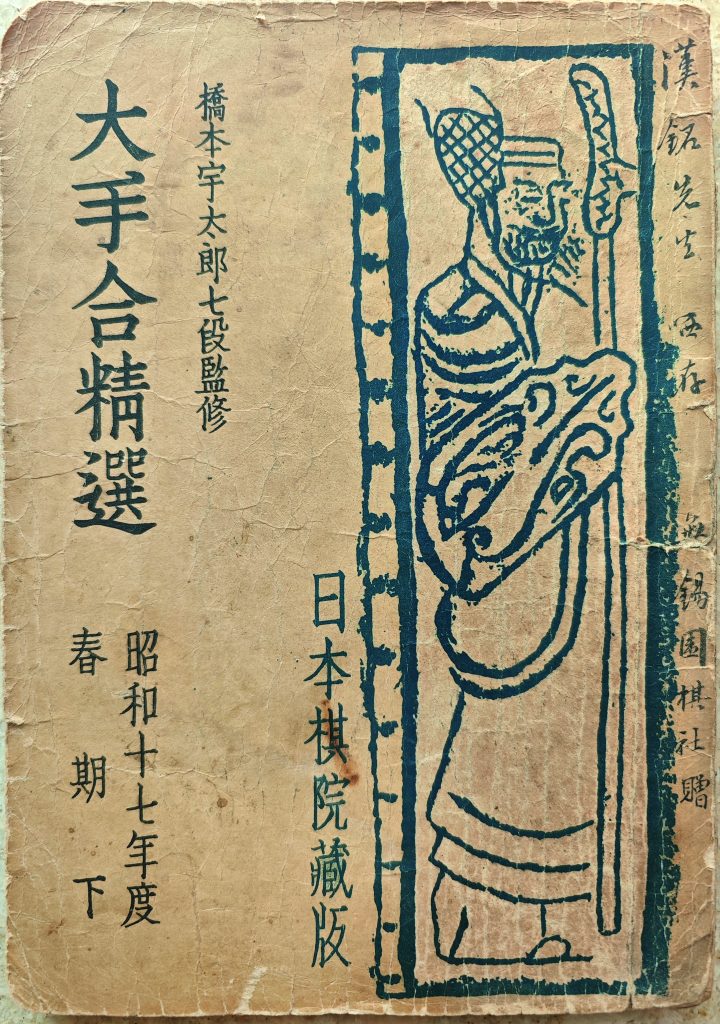 漢銘先生 惠存 無錫圍棋社贈
日本棋院藏版
橋本宇太郎七段監修
大手合精選
昭和十七年度
春期下